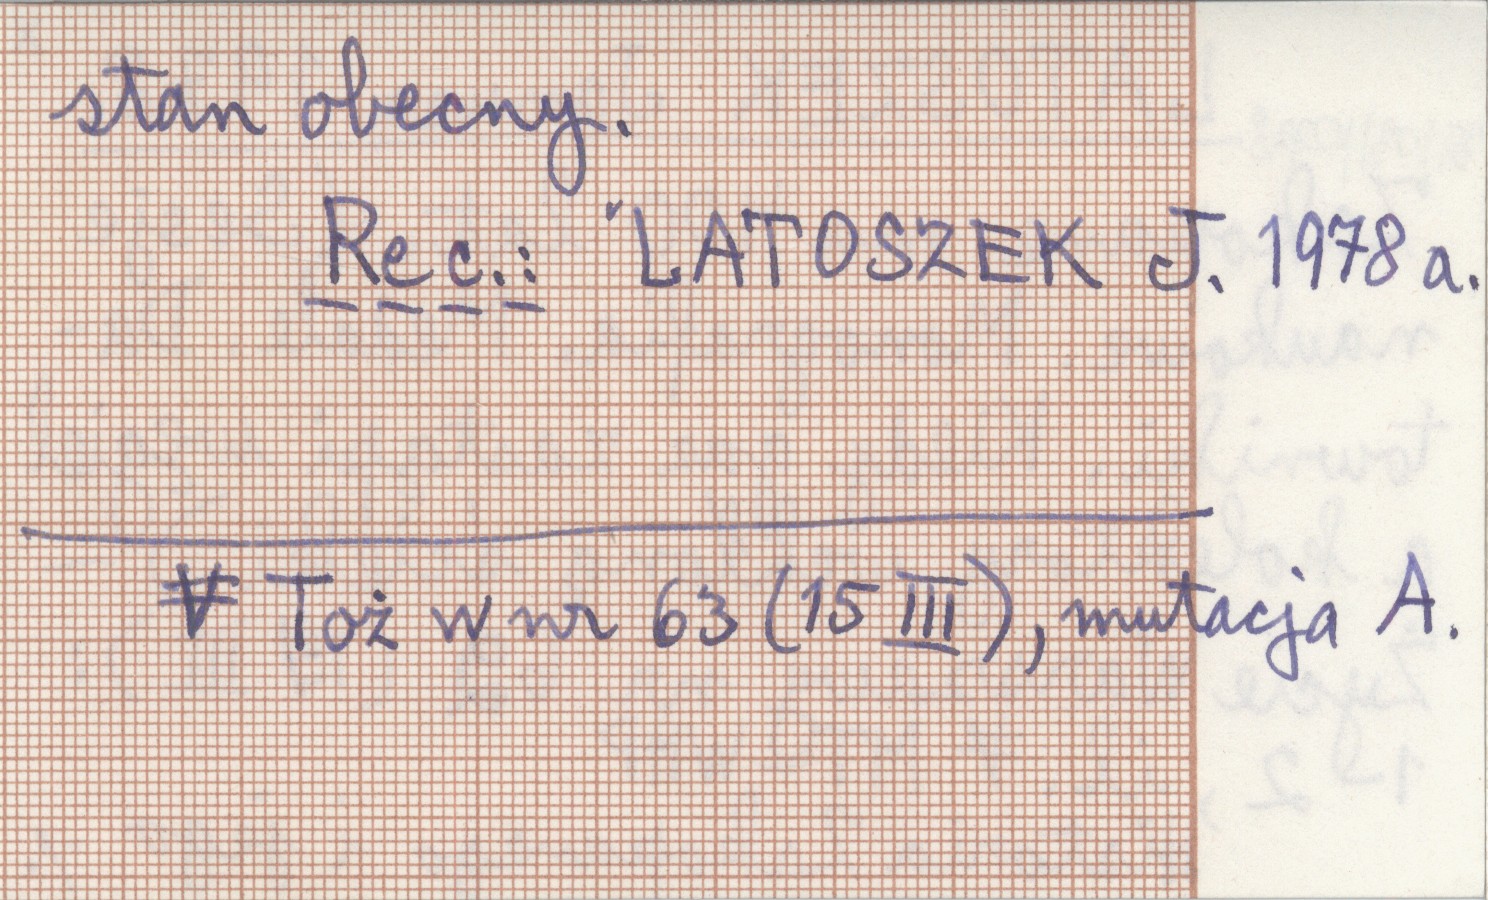 stan obecny.
Rec.: LATOSZEK J. 1978 a.
Toż w nr 63 (15 III), mutacja A.